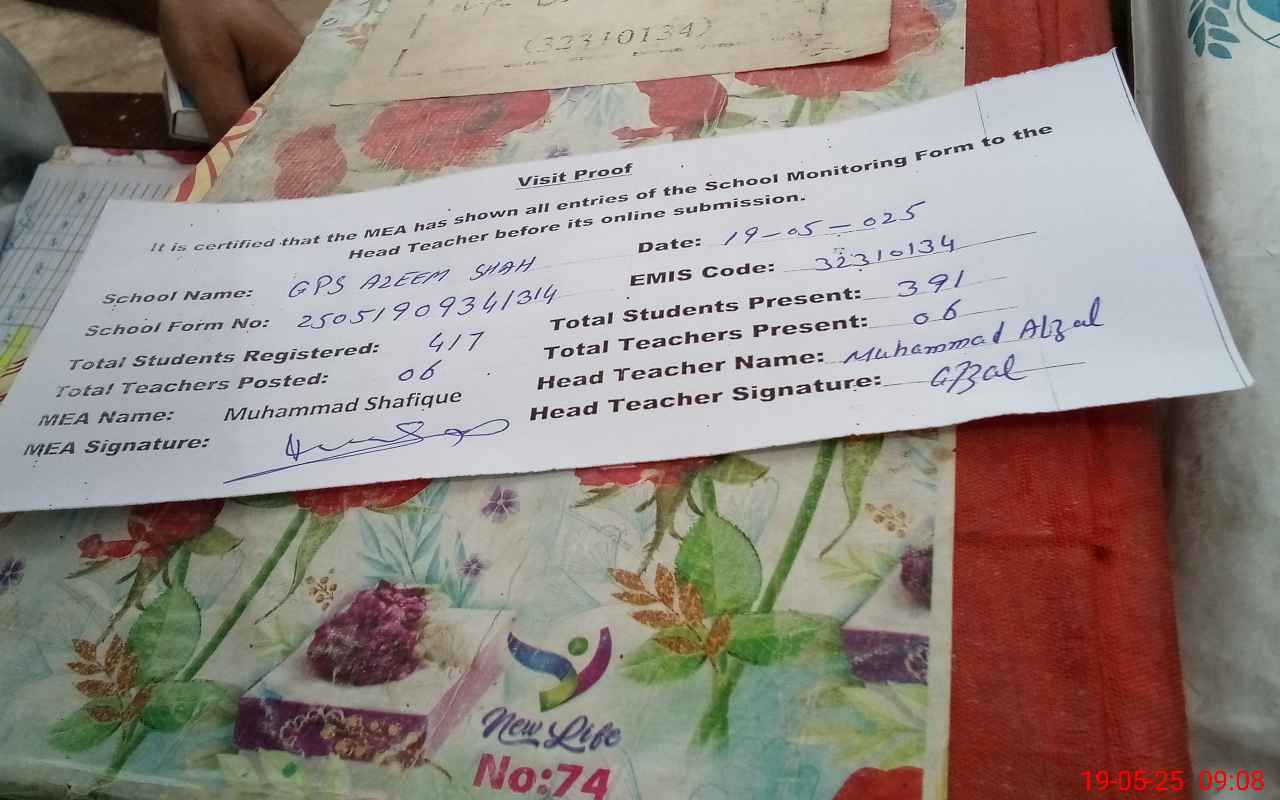 (32310134)
Visit Proof
It is certified that the MEA has shown all entries of the School Monitoring Form to the
Head Teacher before its online submission.
School Name: GPS AZEEM SHAH Date: 19-05-025
School Form No: 25051909341314 EMIS Code: 32310134
Total Students Registered: 417 Total Students Present: 391
Total Teachers Posted: 06 Total Teachers Present: 06
MEA Name: Muhammad Shafique Head Teacher Name: Muhammad Afzal
MEA Signature: Head Teacher Signature: Afzal
New Life
No:74
19-05-25 09:08